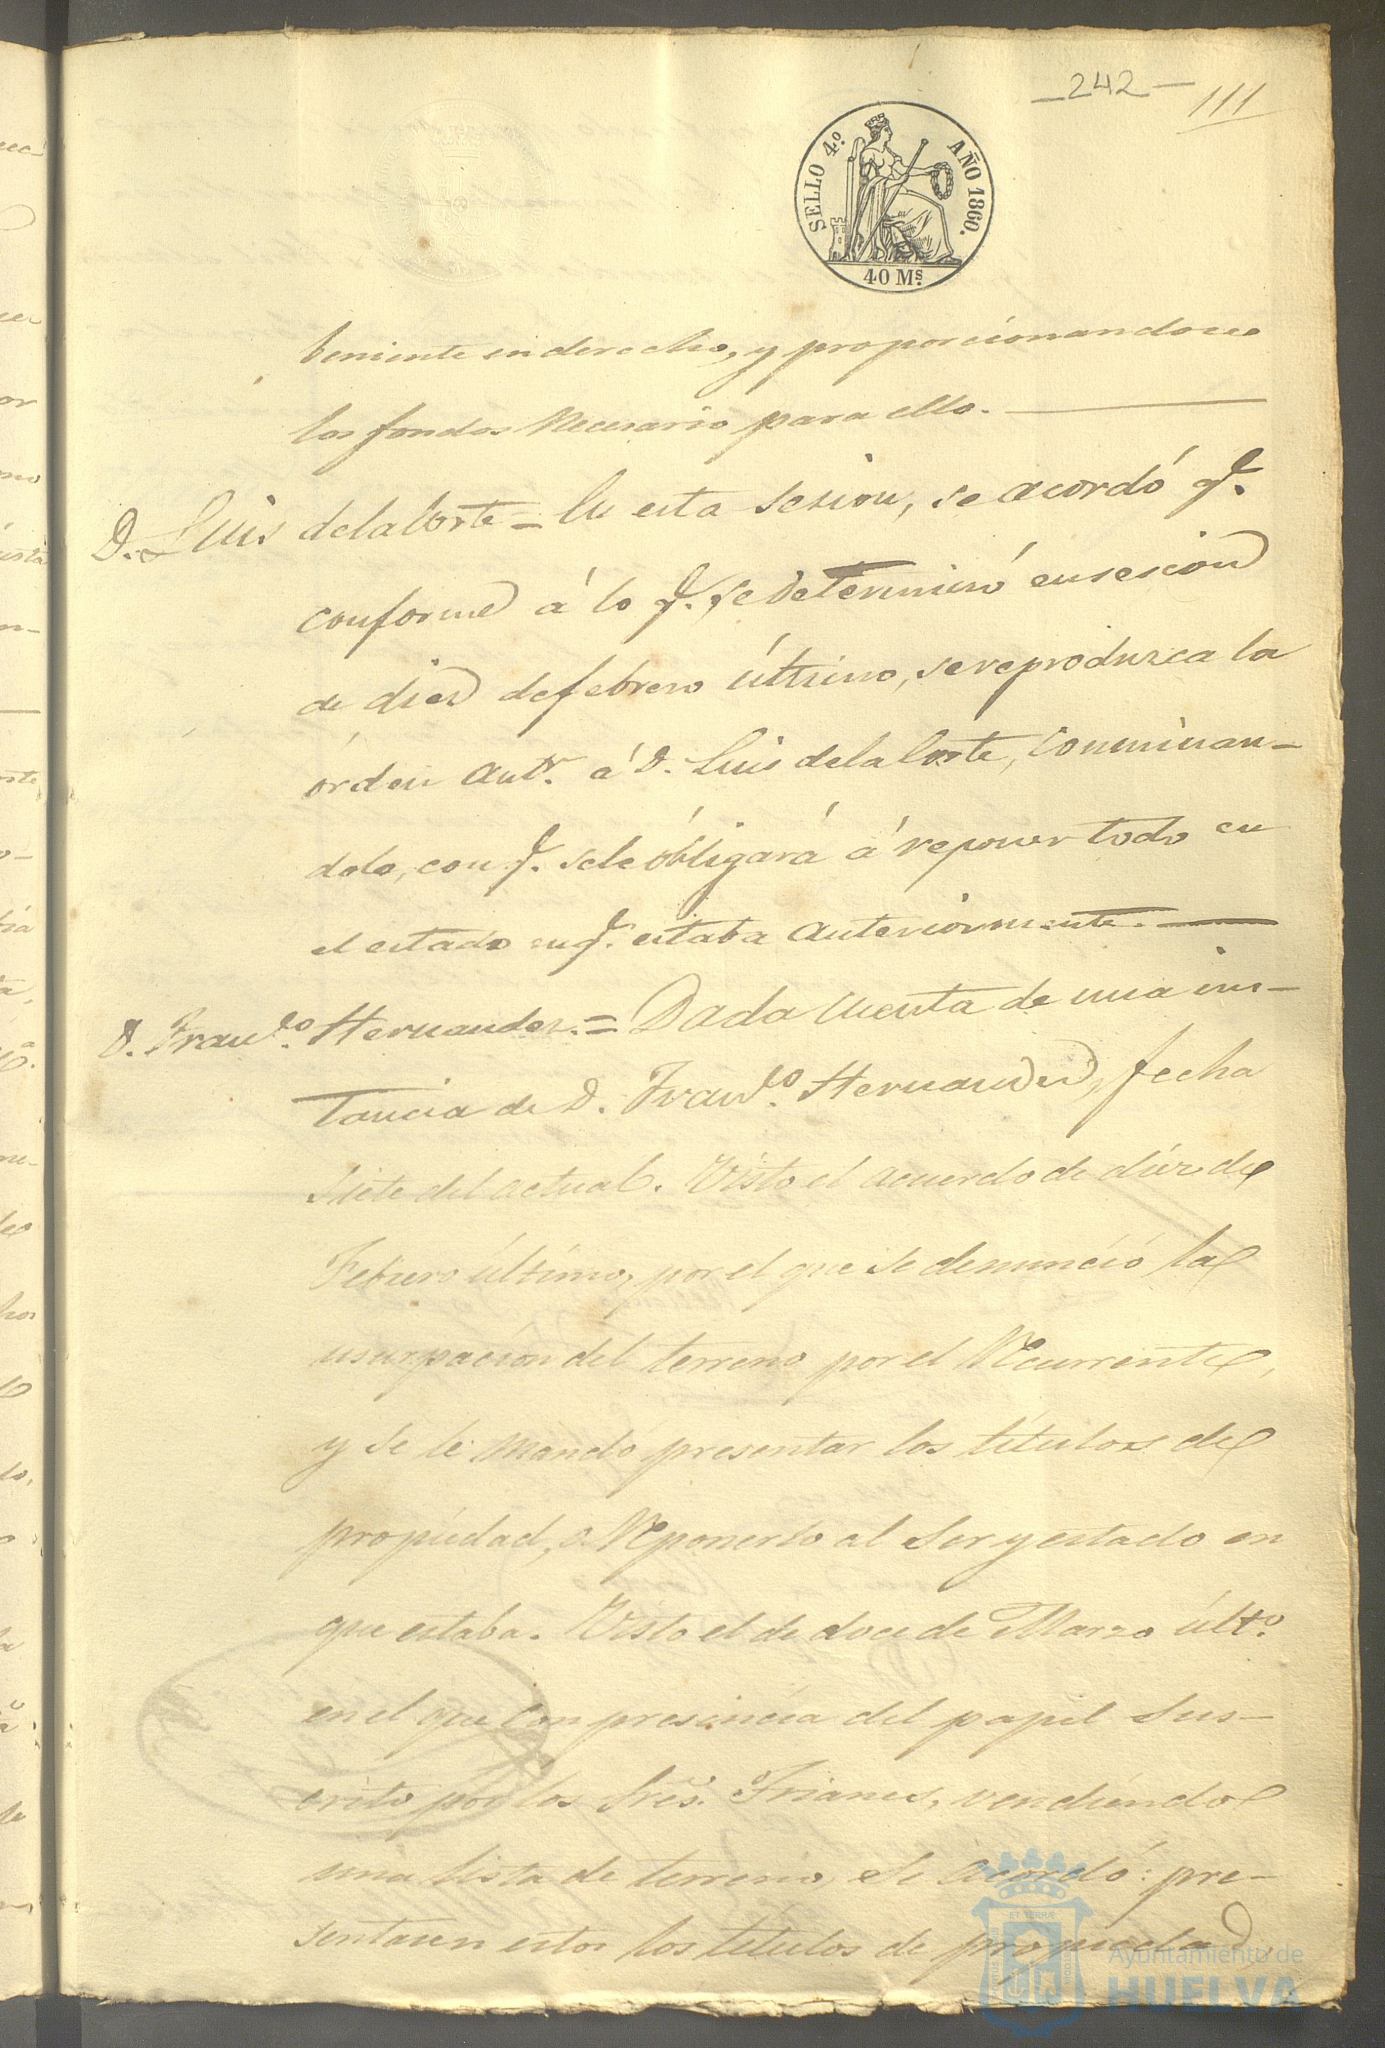 242
111
SELLO 4.º AÑO 1860.
40 Ms.
beniente en derecho, y proporcionandose
los fondos necesario para ello.
D. Luis de la Corte = En esta sesion, se acordó q.e
conforme á lo q.e se determinó en sesion
de diez de febrero último, se reproduzca la
órden antr. á D. Luis de la Corte, conminan-
dole, con q.e se le obligará á reponer todo en
el estado en q.e estaba anteriormente.
D. Franco. Hernandez. = Dada cuenta de una ins-
tancia de D. Franco. Hernandez, fecha
siete del actual. Visto el acuerdo de diez de
Febrero último, por el que se denunció la
usurpación del terreno por el Recurrente,
y se le mandó presentar los títulos de
propiedad, o Reponerlo al ser y estado en
que estaba. Visto el de doce de Marzo últo.
en el que con presencia del papel sus-
crito por los Sres. Frianes, vendiendo
una lista de terreno, se acordó: pre-
sentasen estos los títulos de propiedad,
Ayuntamiento de
HUELVA